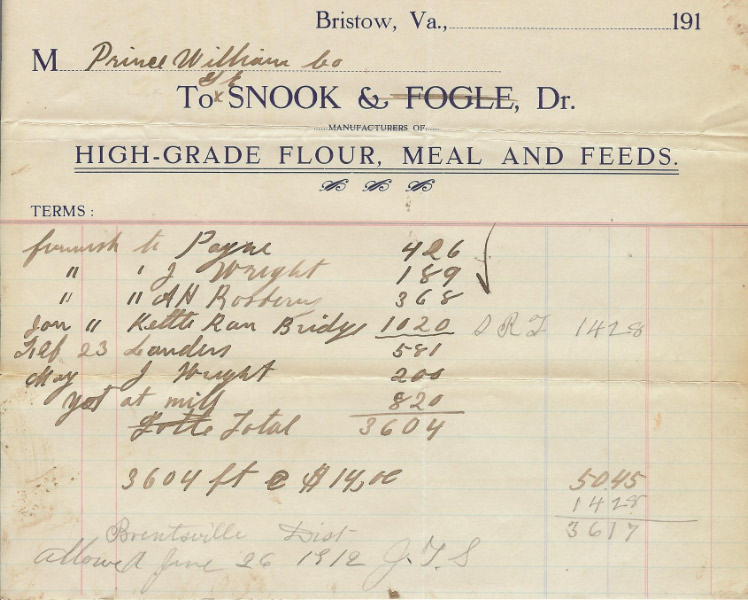 Bristow, Va., 191
M Prince William Co
To SNOOK & FOGLE, Dr.
MANUFACTURERS OF
HIGH-GRADE FLOUR, MEAL AND FEEDS.
TERMS:
furnish to Payne 426
" " J Wright 189
" " A H Robberry 368
Jan " Kettle Run Bridge 1020 D R T 1428
Feb 23 Landers 581
May J Wright 200
Yet at mill 820
Total 3604
3604 ft @ $14,00 50.45
14 28
36 17
Brentsville Dist
allowed June 26 1912 J.T.S